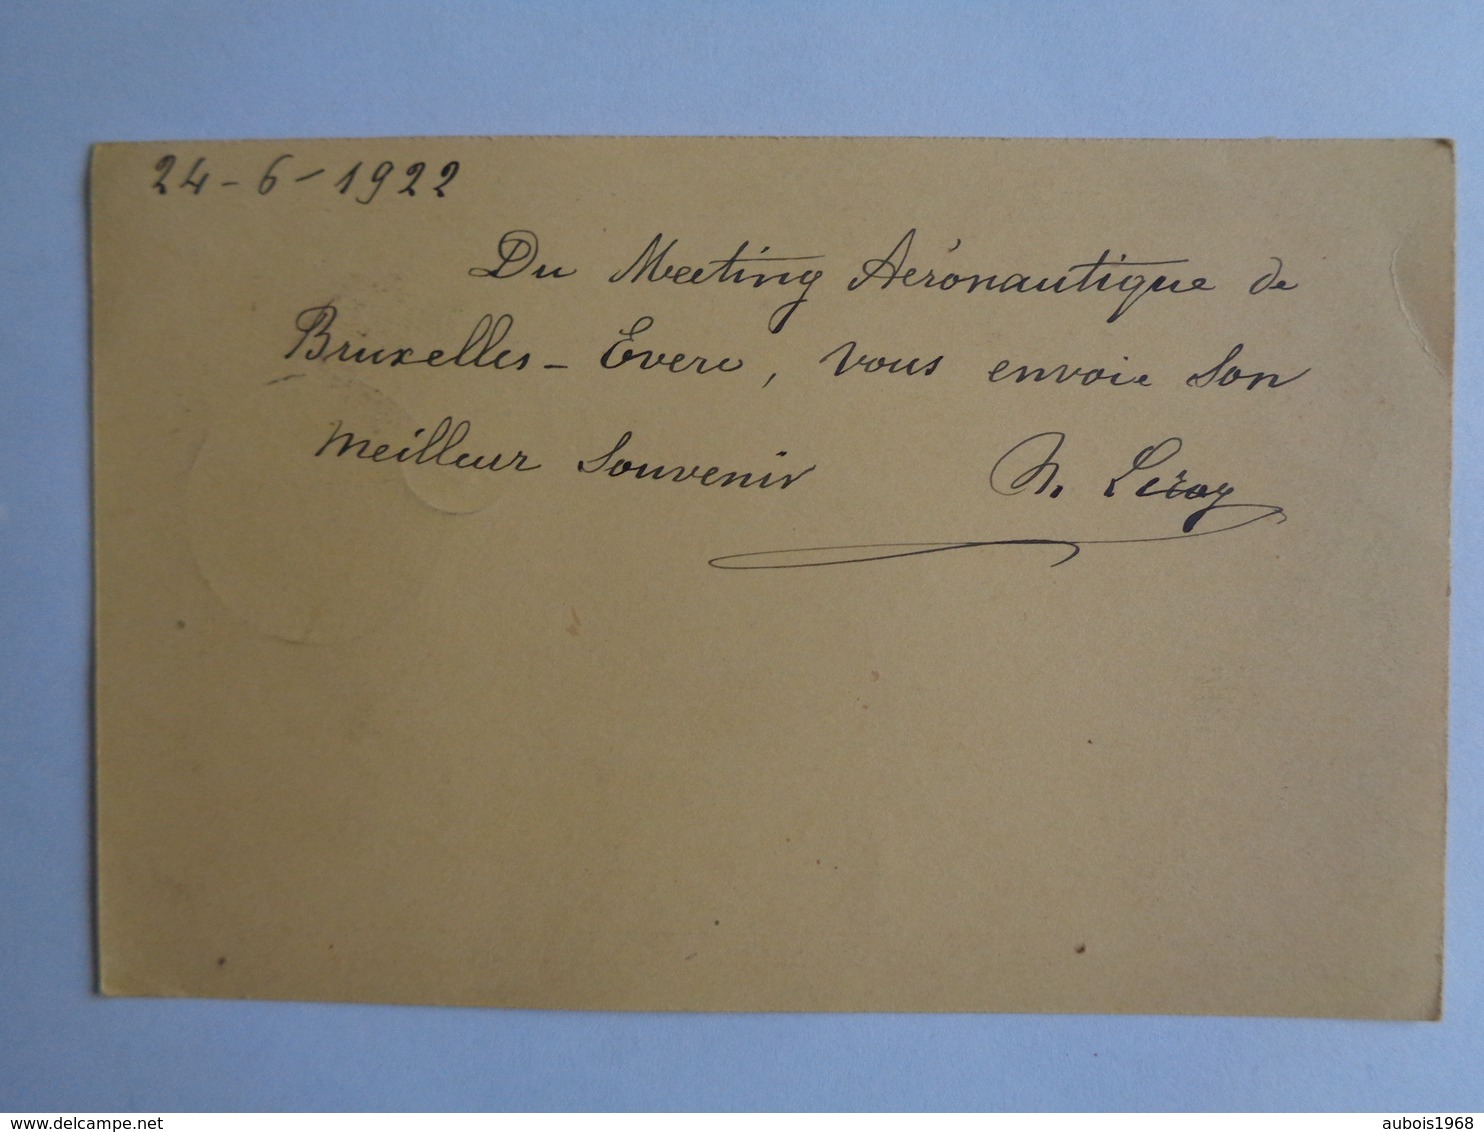 24-6-1922
Du Meeting Aéronautique de
Bruxelles - Evere, vous envoie son
meilleur souvenir N. Leroy
delcampe.net
aubois1968